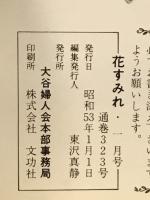 ようお願いします。
花すみれ・一月号
通巻323号
発行日 昭和53年1月1日
編集発行人 東沢真静
発行所
大谷婦人会本部事務局
印刷所 株式会社 文功社